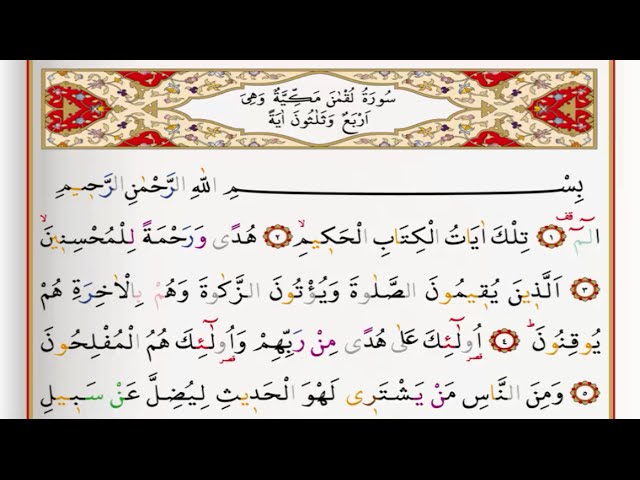 سُورَةُ لُقْمٰنَ مَكِّيَّةٌ وَهِىَ
اَرْبَعٌ وَثَلٰثُونَ اٰيَةً
بِسْمِ اللّٰهِ الرَّحْمٰنِ الرَّحٖيمِ
الٓمٓ ۚ قف ﴿١﴾ تِلْكَ اٰيَاتُ الْكِتَابِ الْحَكٖيمِۙ ﴿٢﴾ هُدًى وَرَحْمَةً لِلْمُحْسِنٖينَۙ
﴿٣﴾ اَلَّذٖينَ يُقٖيمُونَ الصَّلٰوةَ وَيُؤْتُونَ الزَّكٰوةَ وَهُمْ بِالْاٰخِرَةِ هُمْ
يُوقِنُونَۜ ﴿٤﴾ اُو۬لٰٓئِكَ عَلٰى هُدًى مِنْ رَبِّهِمْ وَاُو۬لٰٓئِكَ هُمُ الْمُفْلِحُونَ
﴿٥﴾ وَمِنَ النَّاسِ مَنْ يَشْتَرٖى لَهْوَ الْحَدٖيثِ لِيُضِلَّ عَنْ سَبٖيلِ